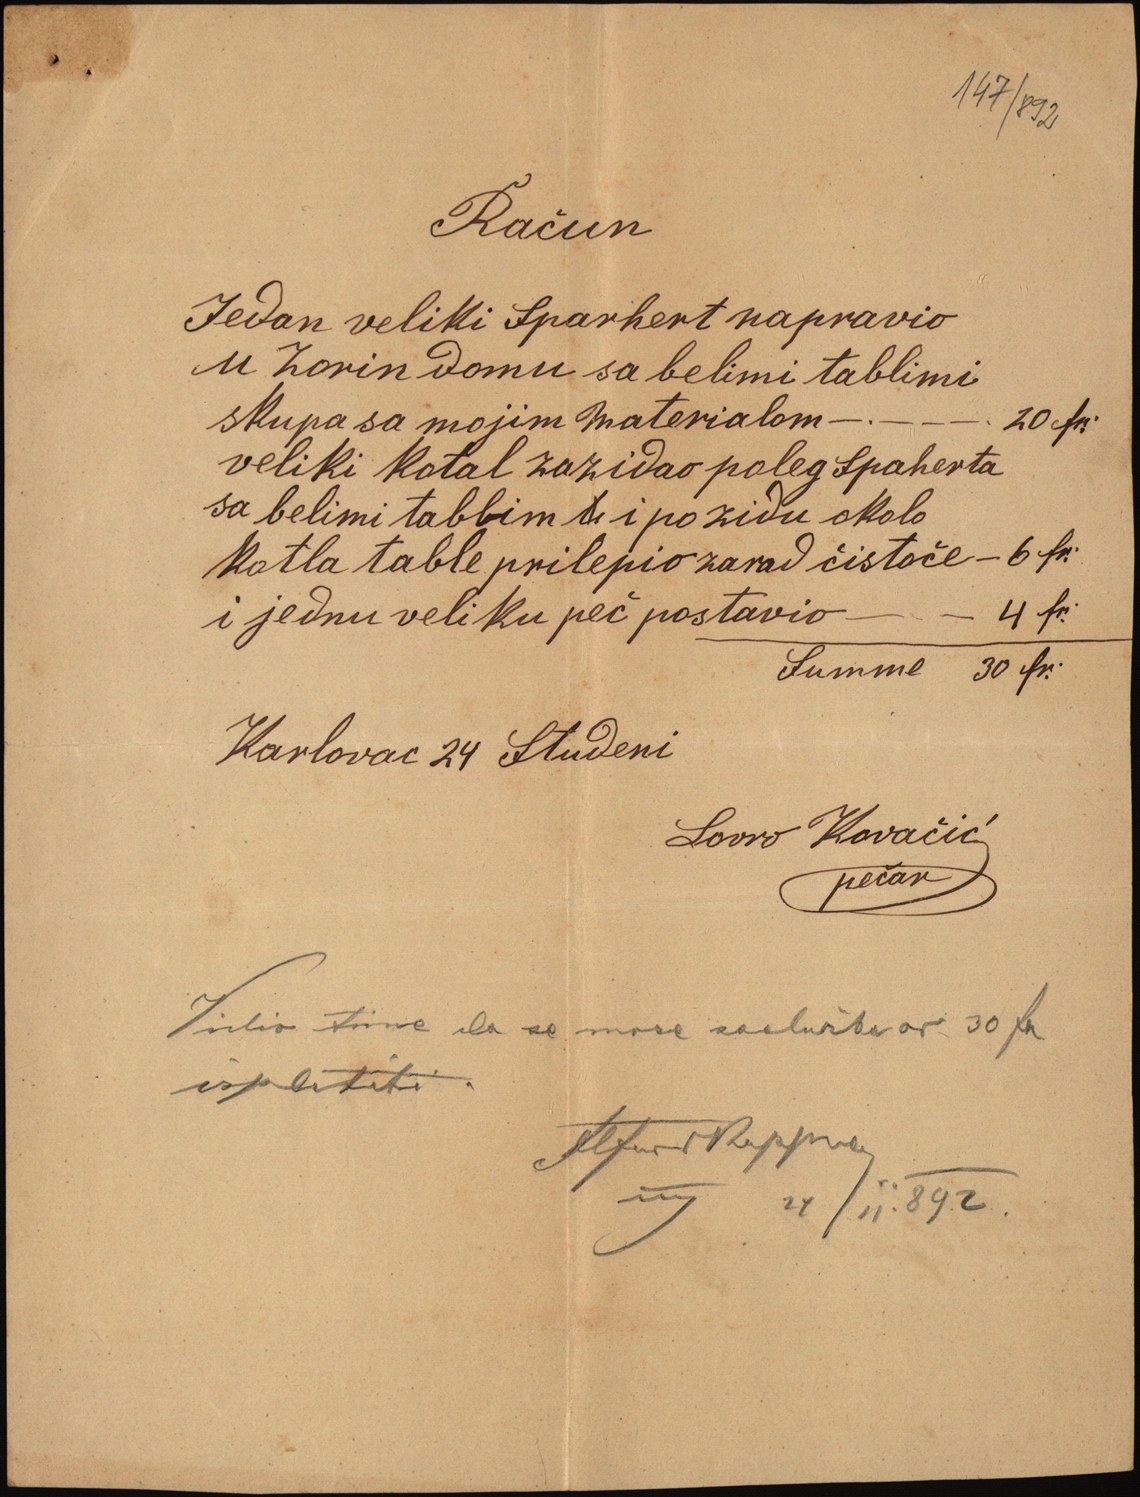 147/892
Račun
Jedan veliki Sparhert napravio
u Zorin domu sa belimi tablimi
skupa sa mojim Materialom — . — — — . 20 fr:
veliki kotal zazidao poleg Spaherta
sa belimi tablim i po zidu okolo
kotla table prilepio zarad čistoče — 6 fr:
i jednu veliku peč postavio — — — 4 fr:
Summe 30 fr:
Karlovac 24 Studeni
Lovro Kovačić
pečar
Vidio time da se more 30 fr
isplatiti.
24/11. 892.